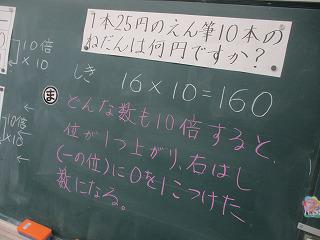 1本25円のえん筆10本の
ねだんは何円ですか?
10倍
×10
しき
16×10=160
ま
どんな数も10倍すると、
位が1つ上がり、右はし
(一の位)に0を1こつけた
数になる。
10倍
×10